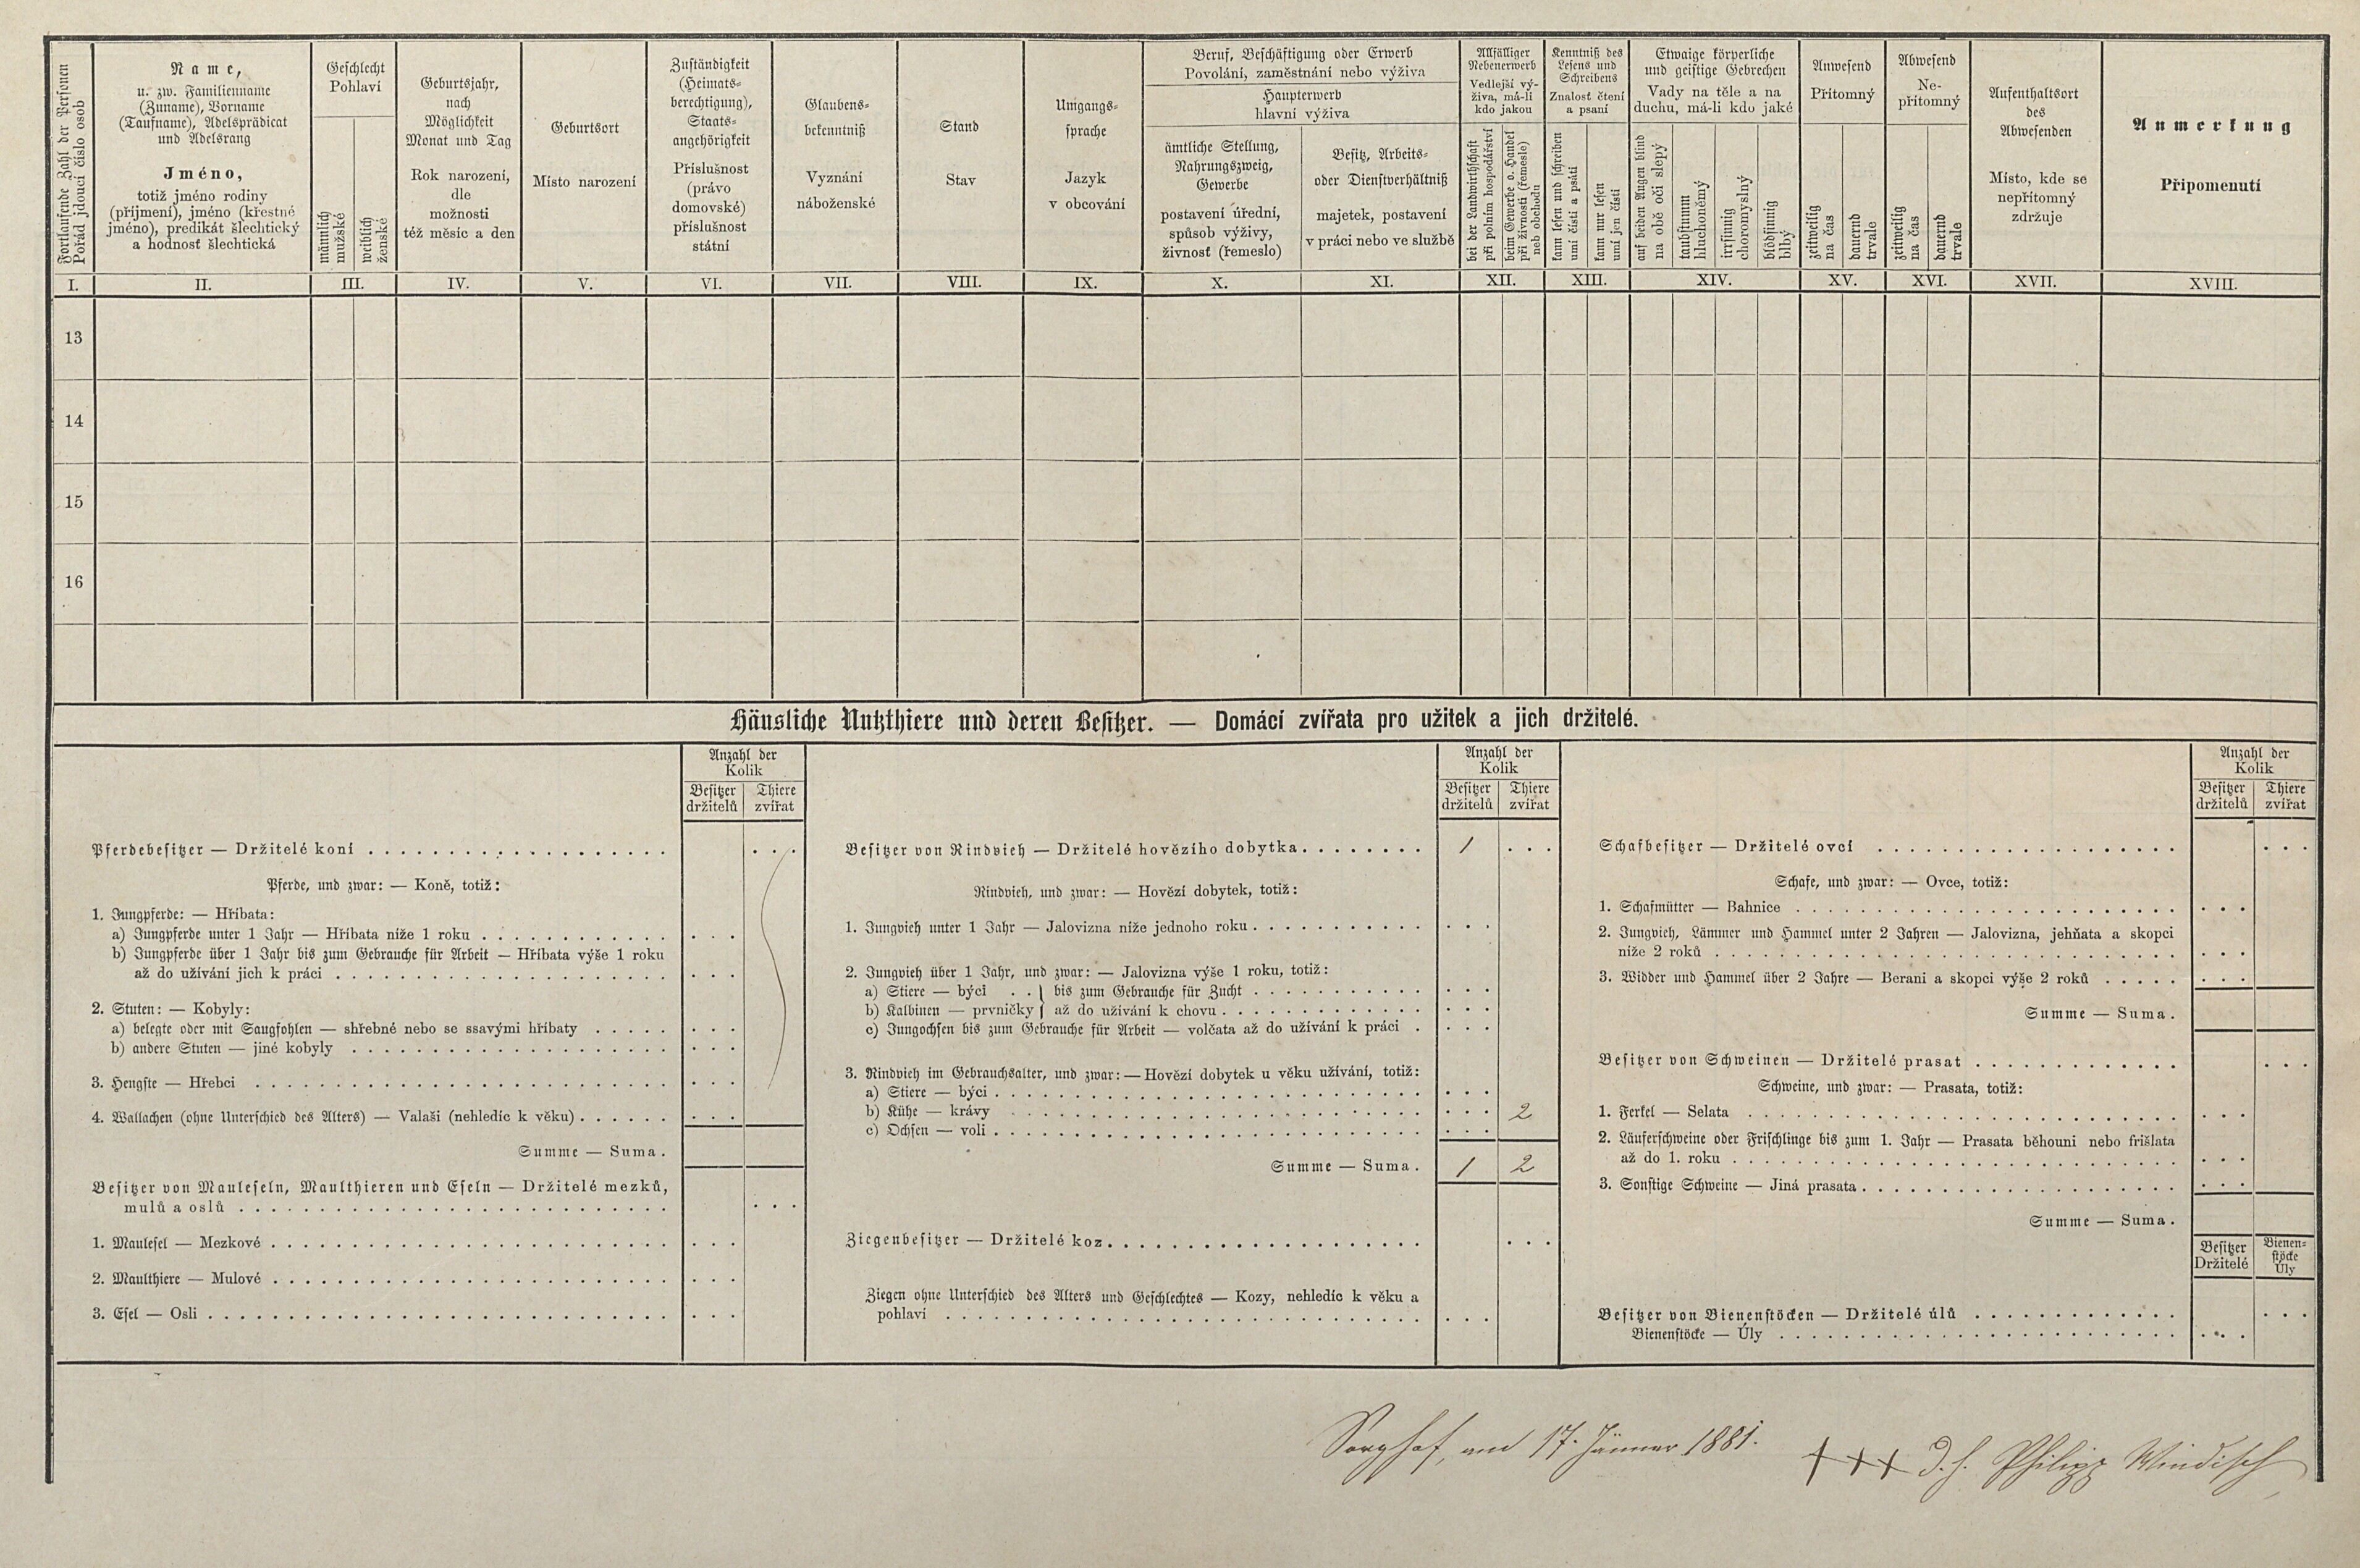 Fortlaufende Zahl der Personen
Pořád jdoucí číslo osob
I.
Name,
u. zw. Familienname
(Zuname), Vorname
(Taufname), Adelsprädicat
und Adelsrang
Jméno,
totiž jméno rodiny
(příjmení), jméno (křestné
jméno), predikát šlechtický
a hodnosť šlechtická
II.
Geschlecht
Pohlaví
männlich
mužské
weiblich
ženské
III.
Geburtsjahr,
nach
Möglichkeit
Monat und Tag
Rok narození,
dle
možnosti
též měsíc a den
IV.
Geburtsort
Místo narození
V.
Zuständigkeit
(Heimats-
berechtigung),
Staats-
angehörigkeit
Příslušnost
(právo
domovské)
příslušnost
státní
VI.
Glaubens-
bekenntniß
Vyznání
náboženské
VII.
Stand
Stav
VIII.
Umgangs-
sprache
Jazyk
v obcování
IX.
Beruf, Beschäftigung oder Erwerb
Povolání, zaměstnání nebo výživa
Haupterwerb
hlavní výživa
ämtliche Stellung,
Nahrungszweig,
Gewerbe
postavení úřední,
spůsob výživy,
živnosť (řemeslo)
X.
Besitz, Arbeits-
oder Dienstverhältniß
majetek, postavení
v práci nebo ve službě
XI.
Allfälliger
Nebenerwerb
Vedlejší vý-
živa, má-li
kdo jakou
bei der Landwirthschaft
při polním hospodářství
beim Gewerbe o. Handel
při živnosti (řemesle)
neb obchodu
XII.
Kenntniß des
Lesens und
Schreibens
Znalosť čtení
a psaní
kann lesen und schreiben
umí čísti a psáti
kann nur lesen
umí jen čísti
XIII.
Etwaige körperliche
und geistige Gebrechen
Vady na těle a na
duchu, má-li kdo jaké
auf beiden Augen blind
na obě oči slepý
taubstumm
hluchoněmý
irrsinnig
choromyslný
blödsinnig
blbý
XIV.
Anwesend
Přítomný
zeitweilig
na čas
dauernd
trvale
XV.
Abwesend
Ne-
přítomný
zeitweilig
na čas
dauernd
trvale
XVI.
Aufenthaltsort
des
Abwesenden
Místo, kde se
nepřítomný
zdržuje
XVII.
Anmerkung
Připomenutí
XVIII.
13
14
15
16
Häusliche Nutzthiere und deren Besitzer. — Domácí zvířata pro užitek a jich držitelé.
Anzahl der
Kolik
Besitzer Thiere
držitelů zvířat
Pferdebesitzer — Držitelé koní
Pferde, und zwar: — Koně, totiž:
1. Jungpferde: — Hříbata:
a) Jungpferde unter 1 Jahr — Hříbata níže 1 roku
b) Jungpferde über 1 Jahr bis zum Gebrauche für Arbeit — Hříbata výše 1 roku
až do užívání jich k práci
2. Stuten: — Kobyly:
a) belegte oder mit Saugfohlen — shřebné nebo se ssavými hříbaty
b) andere Stuten — jiné kobyly
3. Hengste — Hřebci
4. Wallachen (ohne Unterschied des Alters) — Valaši (nehledíc k věku)
Summe — Suma.
Besitzer von Mauleseln, Maulthieren und Eseln — Držitelé mezků,
mulů a oslů
1. Maulesel — Mezkové
2. Maulthiere — Mulové
3. Esel — Osli
Anzahl der
Kolik
Besitzer Thiere
držitelů zvířat
Besitzer von Rindvieh — Držitelé hovězího dobytka 1
Rindvieh, und zwar: — Hovězí dobytek, totiž:
1. Jungvieh unter 1 Jahr — Jalovizna níže jednoho roku
2. Jungvieh über 1 Jahr, und zwar: — Jalovizna výše 1 roku, totiž:
a) Stiere — býci . . } bis zum Gebrauche für Zucht
b) Kalbinen — prvničky } až do užívání k chovu
c) Jungochsen bis zum Gebrauche für Arbeit — volčata až do užívání k práci
3. Rindvieh im Gebrauchsalter, und zwar: — Hovězí dobytek u věku užívání, totiž:
a) Stiere — býci
b) Kühe — krávy 2
c) Ochsen — voli
Summe — Suma. 1 2
Ziegenbesitzer — Držitelé koz
Ziegen ohne Unterschied des Alters und Geschlechtes — Kozy, nehledíc k věku a
pohlaví
Anzahl der
Kolik
Besitzer Thiere
držitelů zvířat
Schafbesitzer — Držitelé ovcí
Schafe, und zwar: — Ovce, totiž:
1. Schafmütter — Bahnice
2. Jungvieh, Lämmer und Hammel unter 2 Jahren — Jalovizna, jehňata a skopci
níže 2 roků
3. Widder und Hammel über 2 Jahre — Berani a skopci výše 2 roků
Summe — Suma.
Besitzer von Schweinen — Držitelé prasat
Schweine, und zwar: — Prasata, totiž:
1. Ferkel — Selata
2. Läuferschweine oder Frischlinge bis zum 1. Jahr — Prasata běhouni nebo frišlata
až do 1. roku
3. Sonstige Schweine — Jiná prasata
Summe — Suma.
Besitzer Bienen-
Držitelé stöcke
Úly
Besitzer von Bienenstöcken — Držitelé úlů
Bienenstöcke — Úly
Sorghof, am 17. Jänner 1881.
+++ d. h. Philipp Windisch